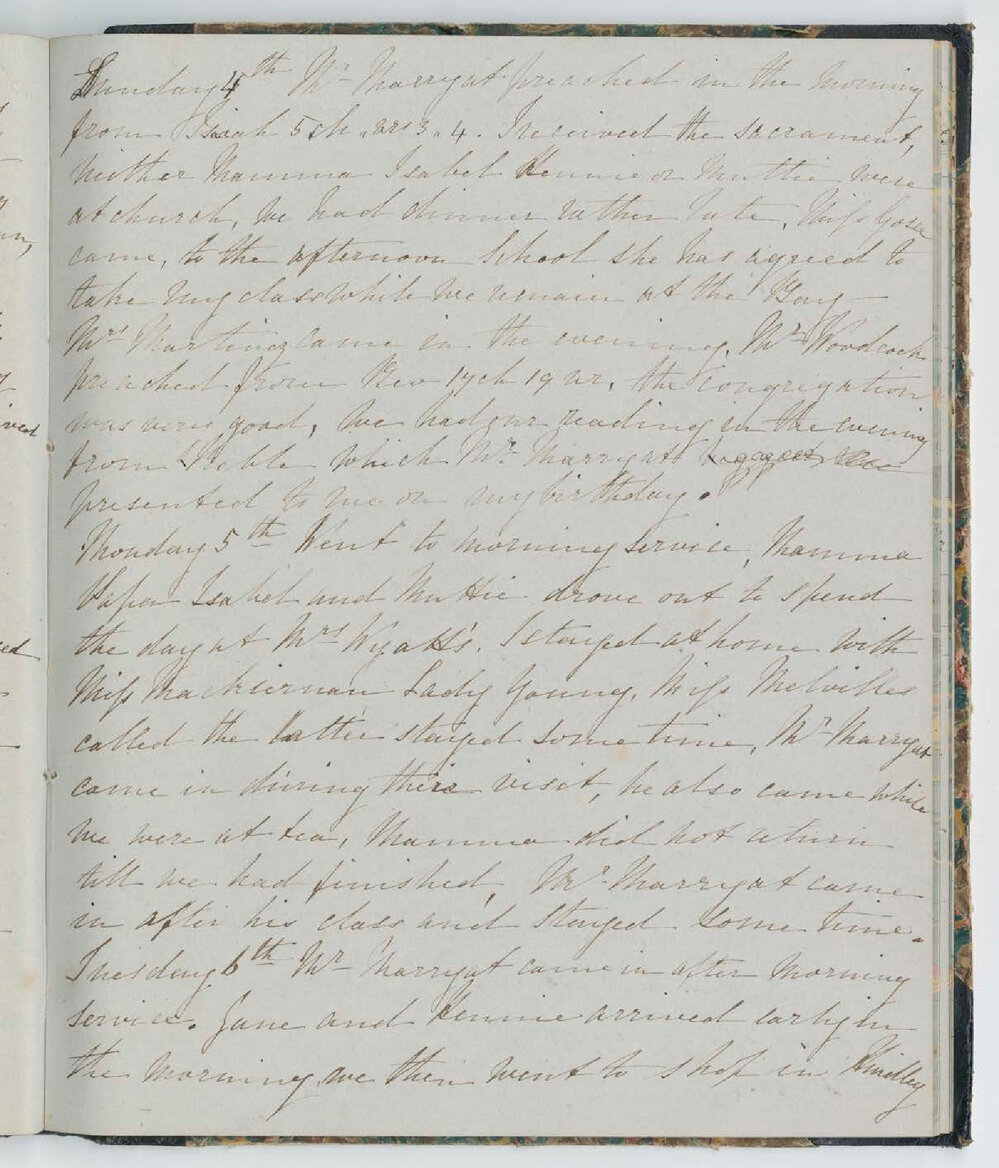 Sunday 4th Mr Marryat preached in the morning
from Isaiah 5 ch. vrs 3. 4. I received the sacrament,
neither Mamma Isabel Hennie or Muttie were
at church, we had dinner rather late, Miss Gosse
came, to the afternoon School she has agreed to
take my class while we remain at the Bay -
Mrs Martin came in the evening, Mr Woodcock
preached from Rev 19 ver, the congregation
was very good, we had our reading in the evening
from Keble which Mr Marryat
presented to me on my birthday.
Monday 5th Went to morning service, Mamma
Papa Isabel and Muttie drove out to spend
the day at Mrs Wyatt's. I stayed at home with
Miss Mackiernan Lady Young, Miss Melvilles
called the latter stayed some time, Mr Marryat
came in during their visit, he also came while
we were at tea, Mamma did not return
till we had finished, Mr Marryat came
in after his class and stayed some time.
Tuesday 6th Mr Marryat came in after morning
service. Jane and Hennie arrived early in
the morning we then went to shop in Hindley